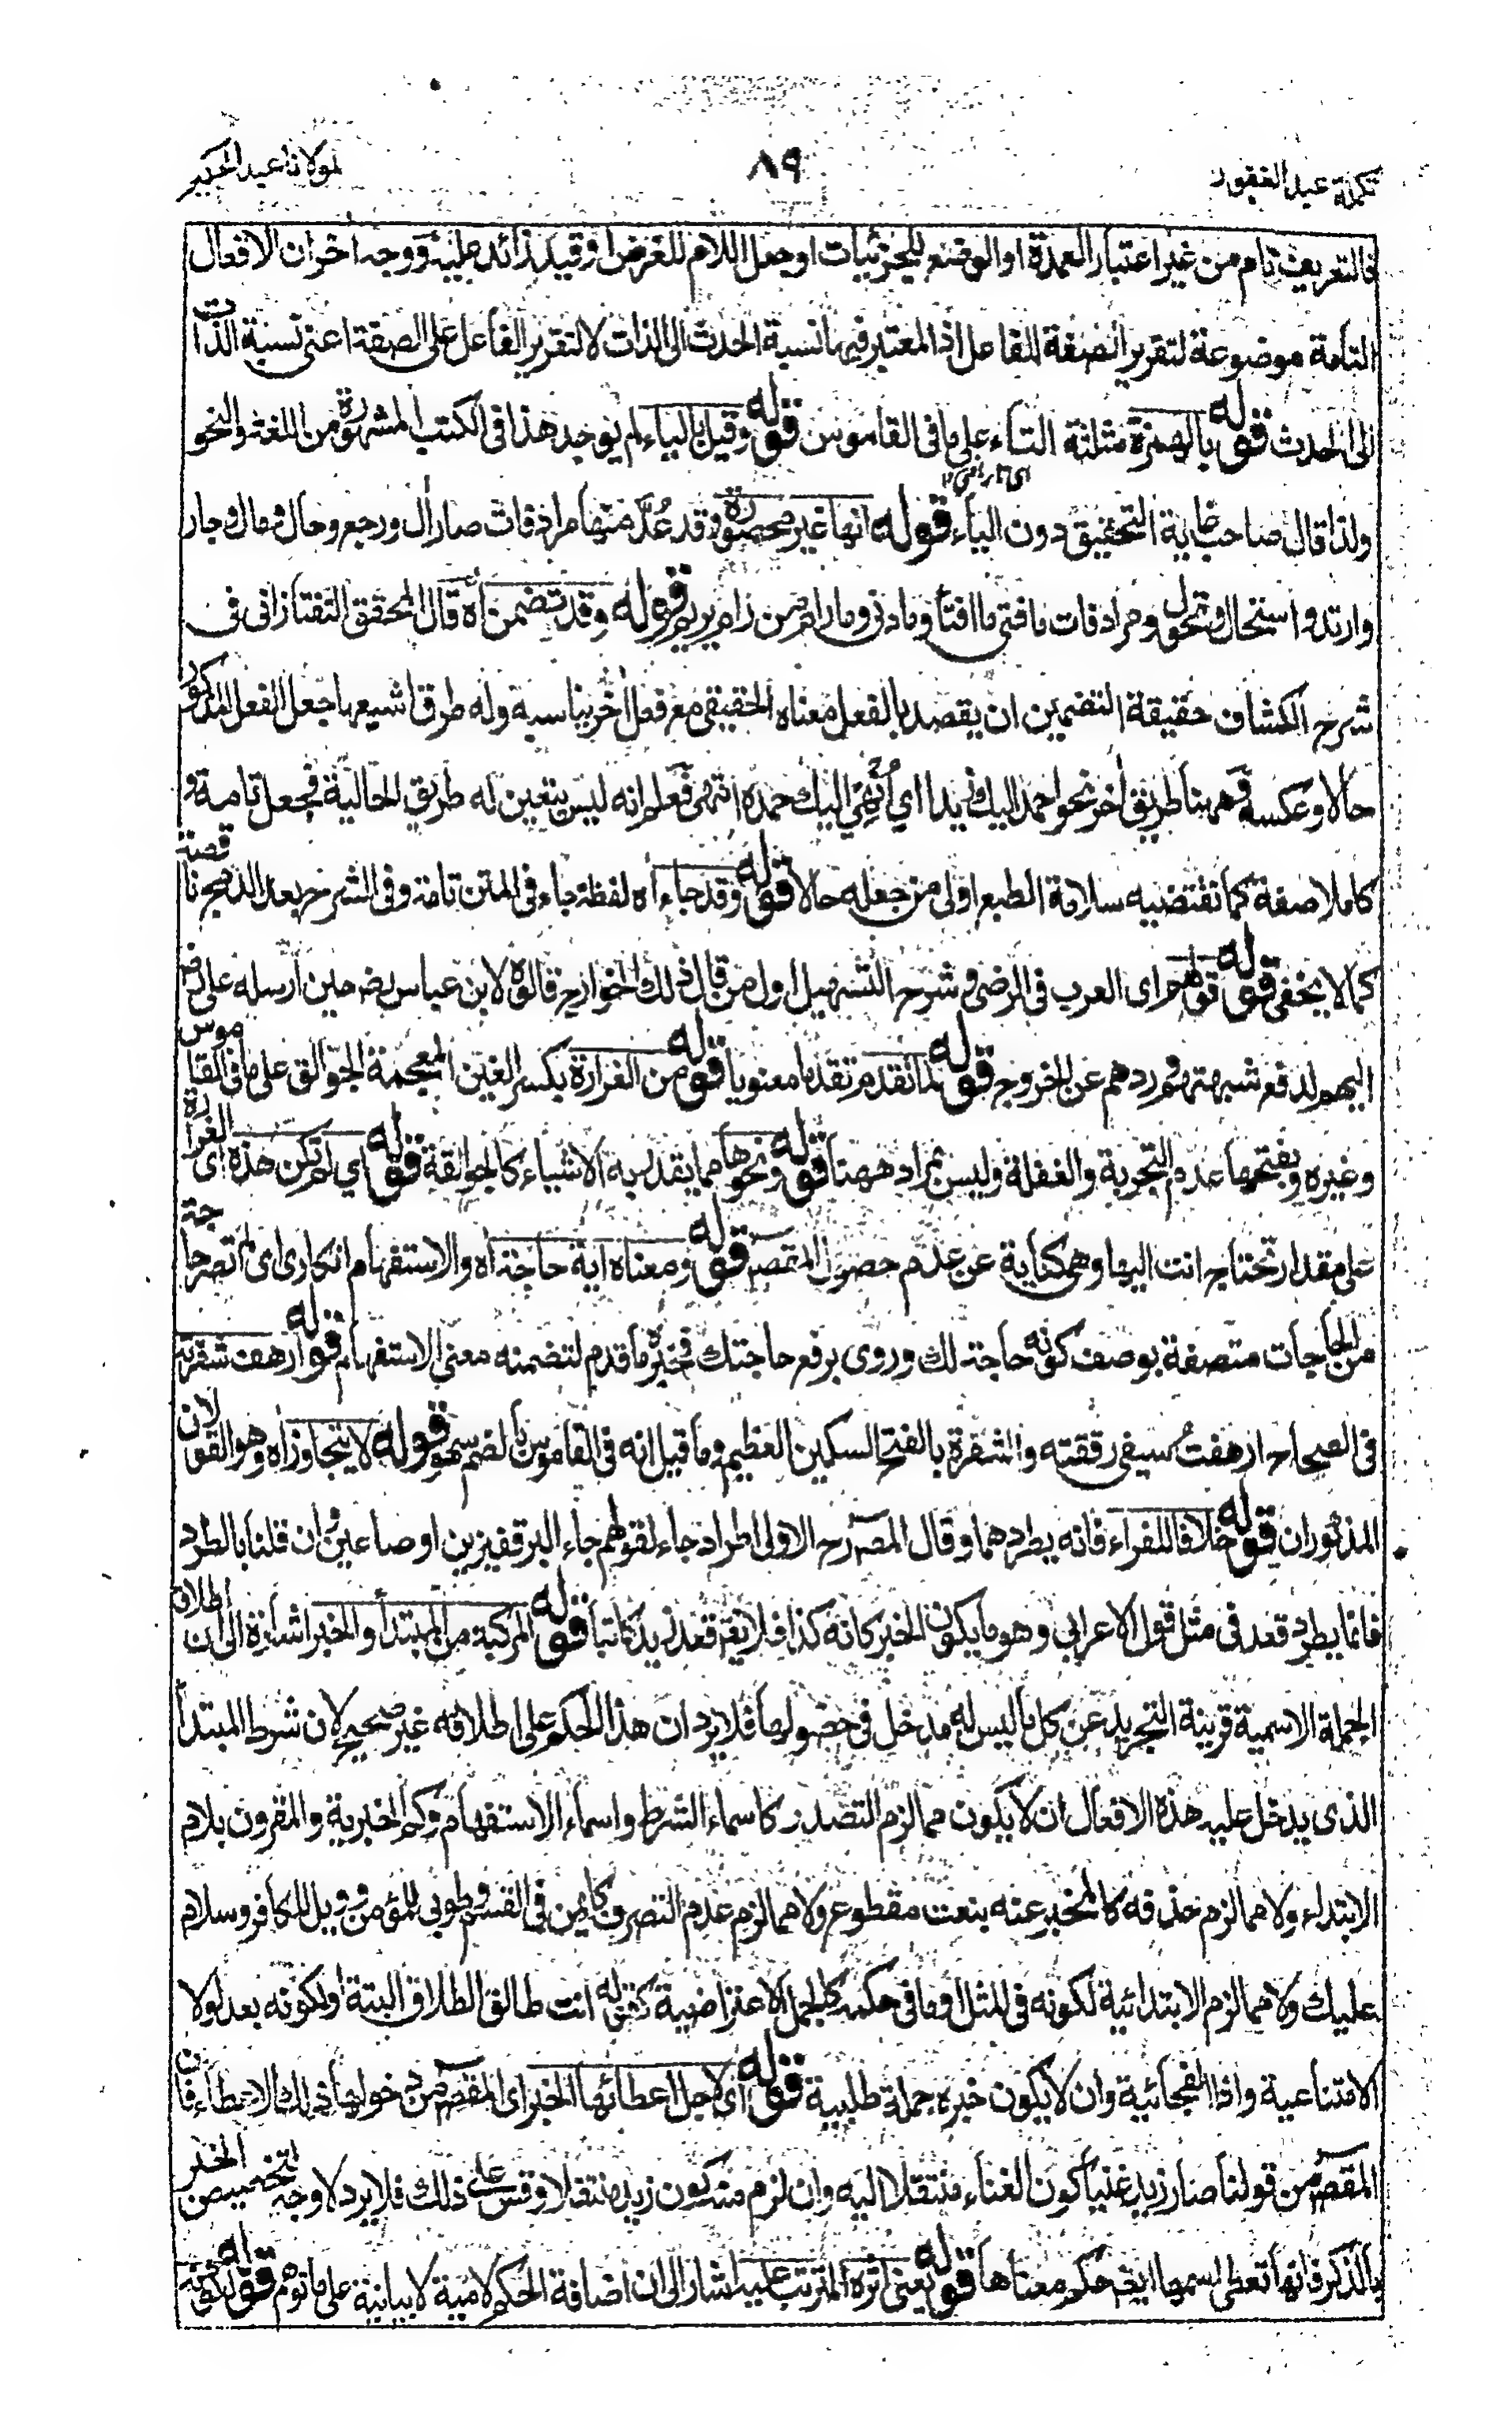 تكملة عبد الغفور
٨٩
لمولانا عبد الحكيم
فالتعريف تام من غير اعتبار العمدة او الوضع للجزئيات او جعل اللام للغرض او قيد زائد عليه ووجه اخر ان الافعال
التامة موضوعة لتقرير الصفة للفاعل اذ المعتبر فيها نسبة الحدث الى الذات لا لتقرير الفاعل على الصفة اعنى نسبة الذات
الى الحدث قوله بالهمزة مثلثة التاء على ما فى القاموس قوله وقيل بالياء لم يوجد هذا فى الكتب المشهورة من اللغة والنحو
ولذا قال صاحب غاية التحقيق دون الياء قوله انها غير محصورة وقد عُدّ منها مرادفات صار آل ورجع وحال وحار
وارتد واستحال وتحول ومرادفات ما فتئ ما افتأ وما ونى وما رام من رام يريم قوله وقد تضمن اه قال المحقق التفتازانى فى
شرح الكشاف حقيقة التضمين ان يقصد بالفعل معناه الحقيقى مع فعل اخر يناسبه وله طرق اشيعها جعل الفعل المذكور
حالا وعكسه وههنا طريق اخر نحو احمد اليك زيدا اى أنهي اليك حمده انتهى فعلم انه ليس بتعين له طريق الحالية فجعل تامة و
كاملا صفة كما تقتضيه سلامة الطبع اولى من جعله حالا قوله وقد جاء اه لفظة جاء فى المتن تامة وفى الشرح بعد الدمج ناقصة
كما لا يخفى قوله قولهم اى العرب فى الرضى وشرح التسهيل اول من قال ذلك الخوارج قالوه لابن عباس رضه حين ارسله على رضه
اليهم لدفع شبهتهم وردهم عن الخروج قوله لما تقدم تقدما معنويا قوله من الغرارة بكسر الغين المعجمة الجوالق على ما فى القاموس
وغيره وبفتحها عدم التجربة والغفلة وليس بمراد ههنا قوله ونحوها مما يقدر به الاشياء كالجوالقة قوله اي لم تكن هذه اى الغرارة
على مقدار تحتاج انت اليها وهى كناية عن عدم حصول المقصد قوله ومعناه اية حاجة اه والاستفهام انكارى اى لم تصر حاجة
من الحاجات متصفة بوصف كونه حاجة لك وروى برفع حاجتك فخبره ما قدم لتضمنه معنى الاستفهام قوله ارهف شفرته
فى الصحاح ارهفتُ سيفى رققته والشفرة بالفتح السكين العظيم وما قيل انه فى القاموس بالضم سهو قوله لا يتجاوز اه وهو القولان
المذكوران قوله خلافا للفراء فانه يطردهما وقال المصرح الاولى اطراد جاء لقولهم جاء البر قفيزين او صاعين وان قلنا بالطرد
فانما يطرد قعد فى مثل قول الاعرابي وهو ما يكون الخبر كانه كذا فلا يقه قعد زيد كاتبا قوله المركبة من المبتدأ والخبر اشارة الى ان اطلاق
الجملة الاسمية قرينة التجريد عن كل ما ليس له مدخل فى حضولها فلا يرد ان هذا الحكم على اطلاقه غير صحيح لان شرط المبتدأ
الذى يدخل عليه هذه الافعال ان لا يكون مما لزم التصدر كاسماء الشرط واسماء الاستفهام وكم الخبرية والمقرون بلام
الابتداء ولا مما لزم حذفه كالمخبر عنه بنعت مقطوع ولا مما لزم عدم التصرف كايمن فى القسم وطوبى للمؤمن وويل للكافر وسلام
عليك ولا مما لزم الابتدائية لكونه فى المثل او ما فى حكمه كالجمل الاعتراضية كقوله انت طالق الطلاق البتة او لكونه بعد لولا
الامتناعية واذا الفجائية وان لا يكون خبره جملة طلبية قوله اى لاجل اعطائها الخبر اى المقصد من دخولها ذلك الاعطاء فان
المقصد من قولنا صار زيد غنيا كون الغناء منتقلا اليه وان لزم منه كون زيد منتقلا وقس على ذلك فلا يرد لا وجه لتخصيص الخبر
بالذكر فانها تعطى اسمها ايضه حكم معناها قوله يعنى اثره المترتب عليه اشار الى ان اضافة الحكم لامية لا بيانية على ما توهم قوله لكونه